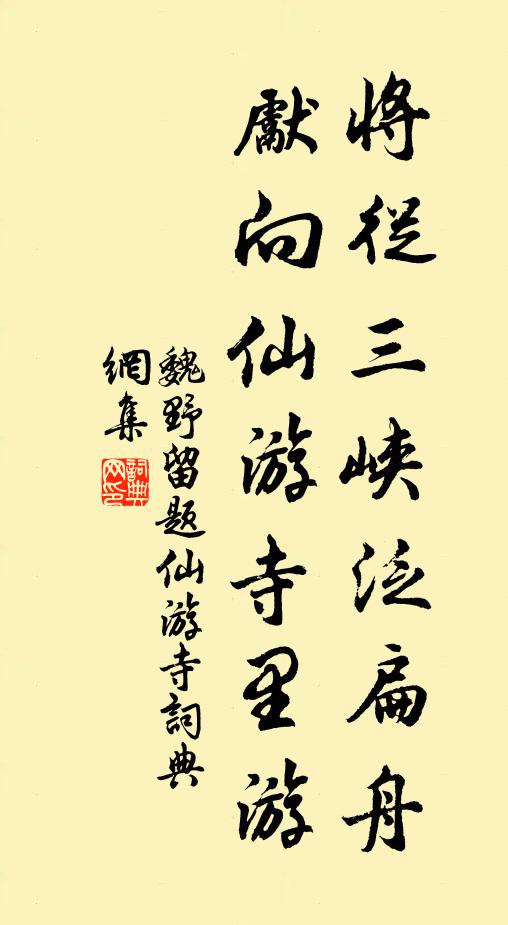 將從三峽泛扁舟
獻向仙游寺里游
魏野留題仙游寺詞典
網集
詞典網印